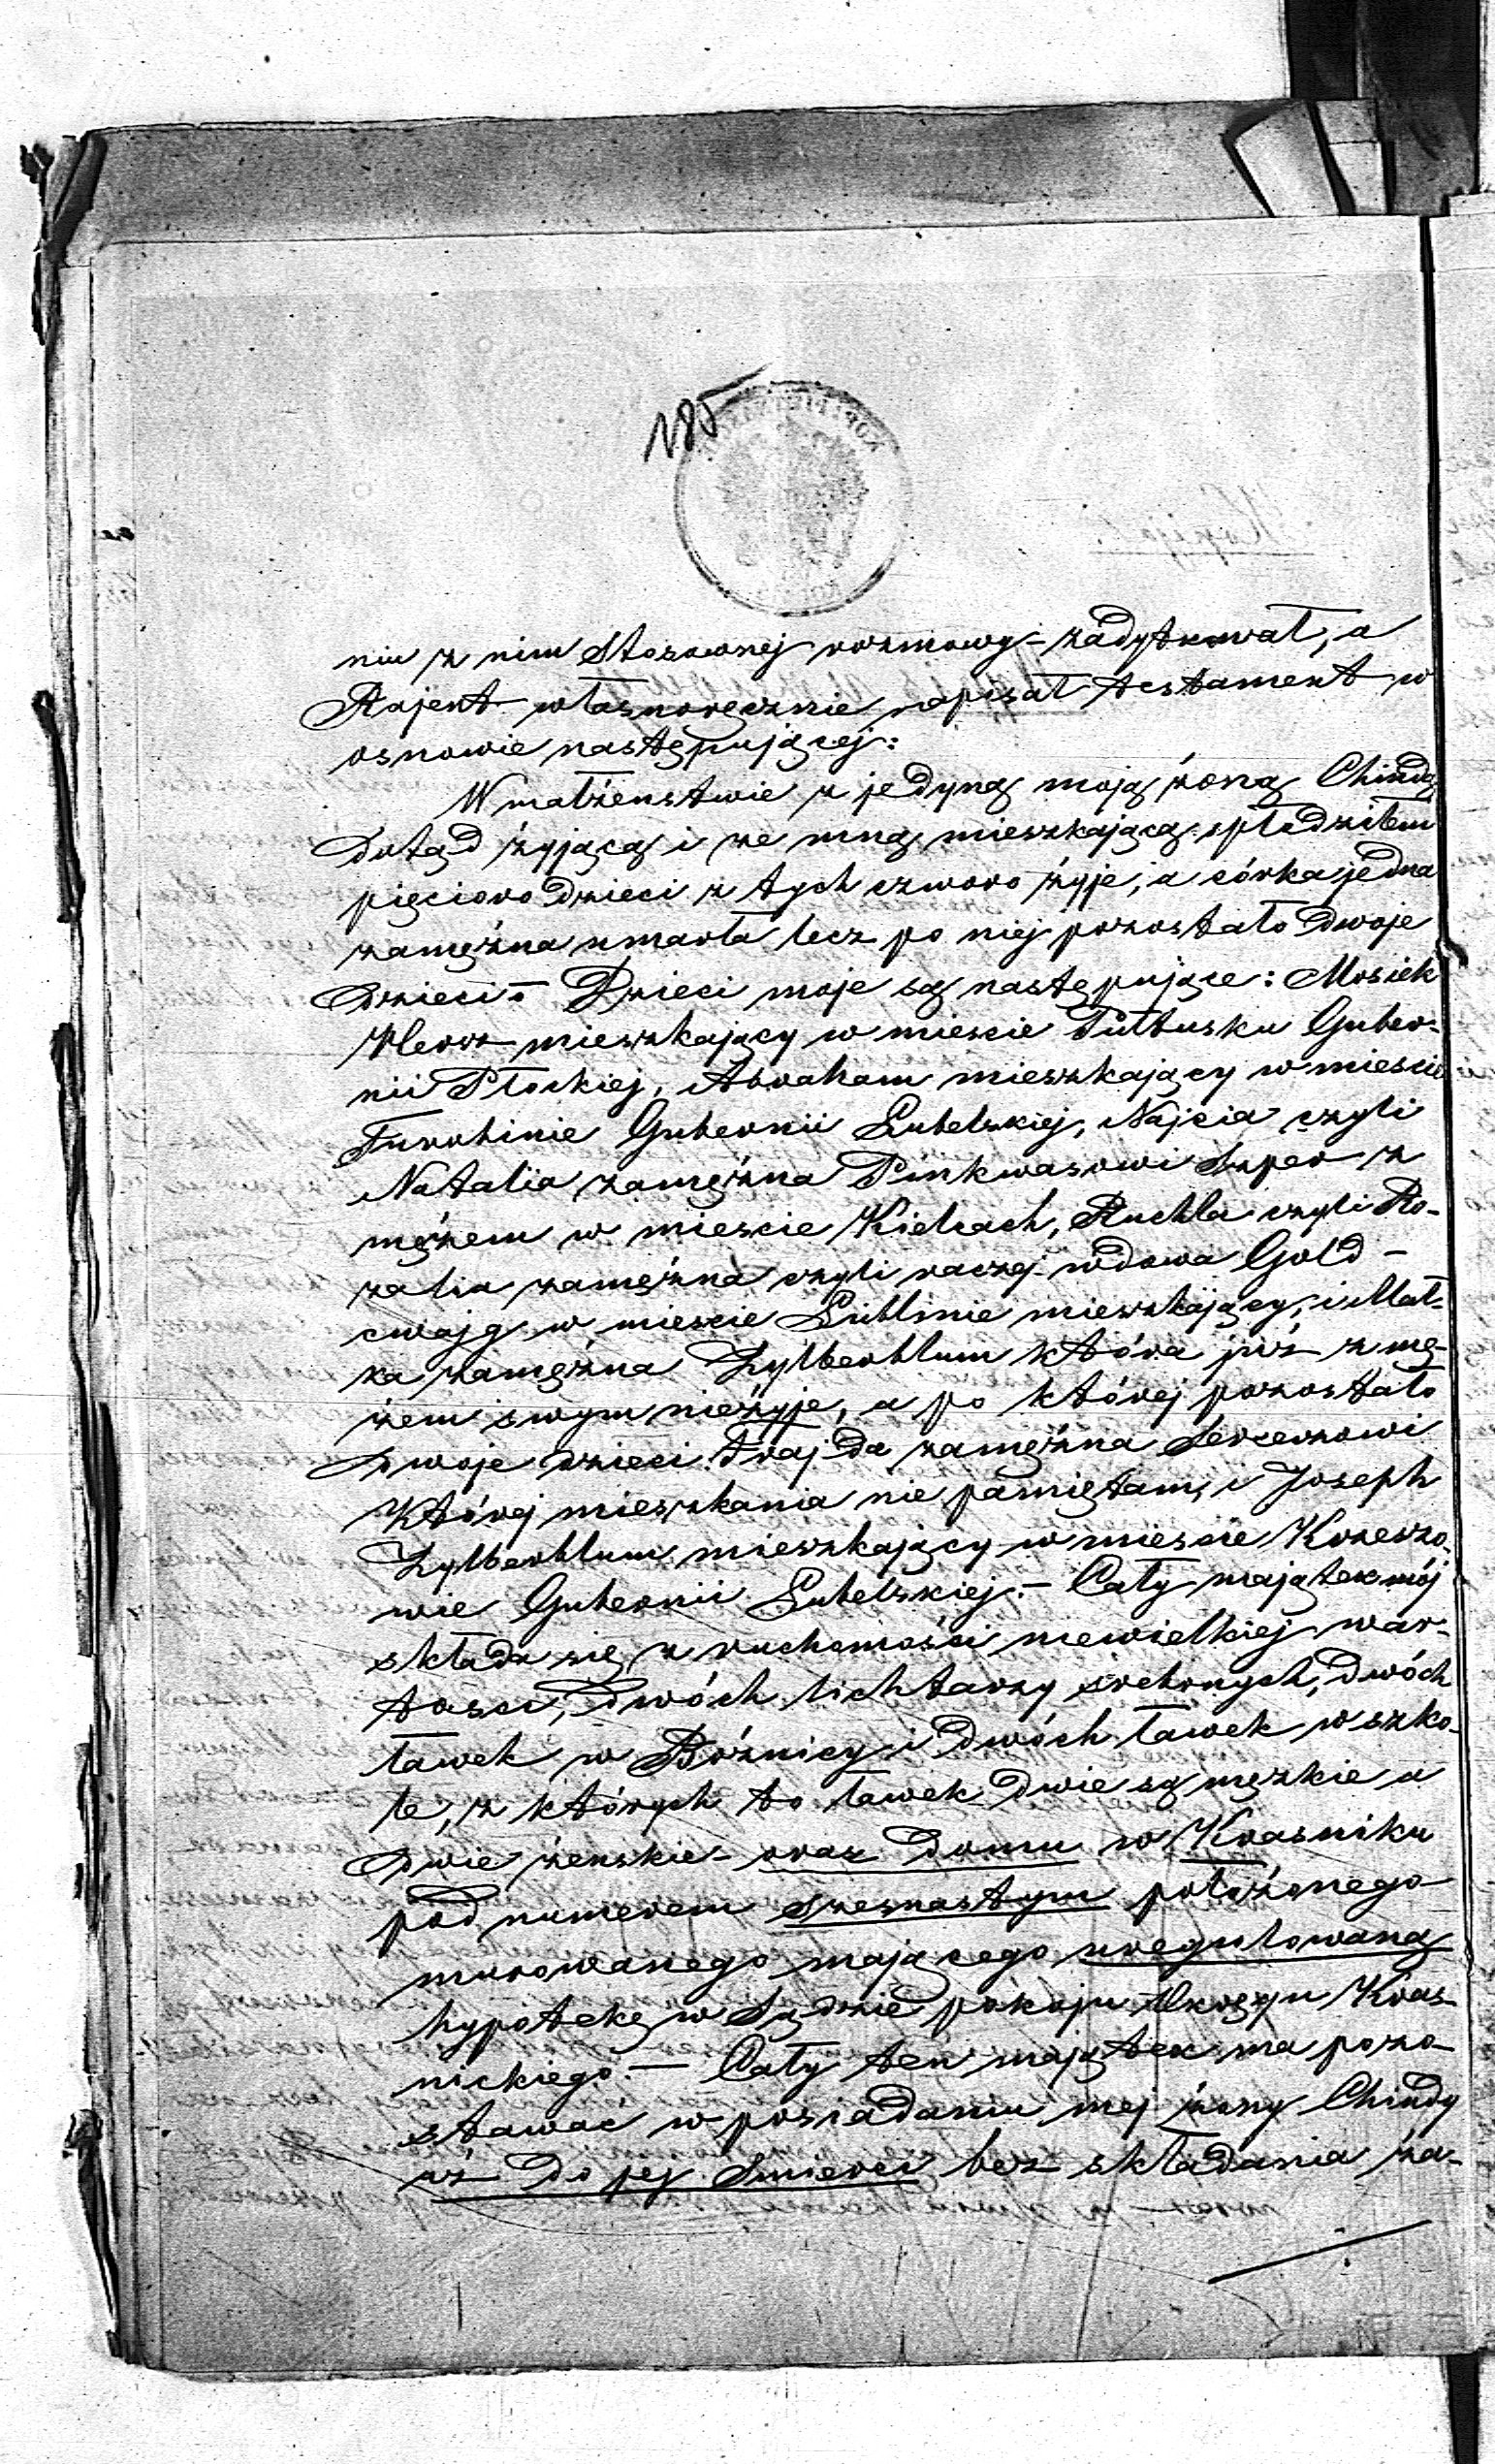 185
niu z nim stosownej rozmowy – zadyktował, a
Rajent własnoręcznie napisał testament w
osnowie następującej:
W małżenstwie z jedyną moją żoną Chindą
dotąd żyjącą i ze mną mieszkającą spłodziłem
pięcioro dzieci z tych czworo żyje, a córka jedna
zamężna umarła lecz po niej pozostało dwoje
dzieci – Dzieci moje są następujące: Mosiek
Hersz mieszkający w miescie Pułtusku Guber-
nii Płockiej, Abraham mieszkający w miescie
Turobinie Gubernii Lubelskiej, Najcia czyli
Natalia zamężna Pinkwasowi Szper z
mężem w miescie Kielcach, Ruchla czyli Ro-
zalia zamężna czyli raczej wdowa Gold-
cwajg w miescie Lublinie mieszkający, i Mał-
ka zamężna Zylberblum która już z mę-
żem swym nieżyje, a po której pozostało
dwoje dzieci Frajda zamężna Sercerzowi
której mieszkania nie pamiętam, i Joseph
Zylberblum mieszkający w miescie Krzeszo-
wie Gubernii Lubelskiej. – Cały majątek mój
składa się z ruchomości niewielkiej war-
tosci, dwóch lichtarzy srebrnych, dwóch
ławek w Bóżnicy i dwóch ławek w szko-
le, z których to ławek dwie są męzkie a
dwie żenskie – oraz domu w Krasniku
pod numerem szesnastym położonego
murowanego mającego uregulowaną
hypotekę w Sądzie pokoju Okręgu Kras-
nickiego. – Cały ten majątek ma pozo-
stawac w posiadaniu mej żony Chindy
aż do jej smierci bez składania ża-